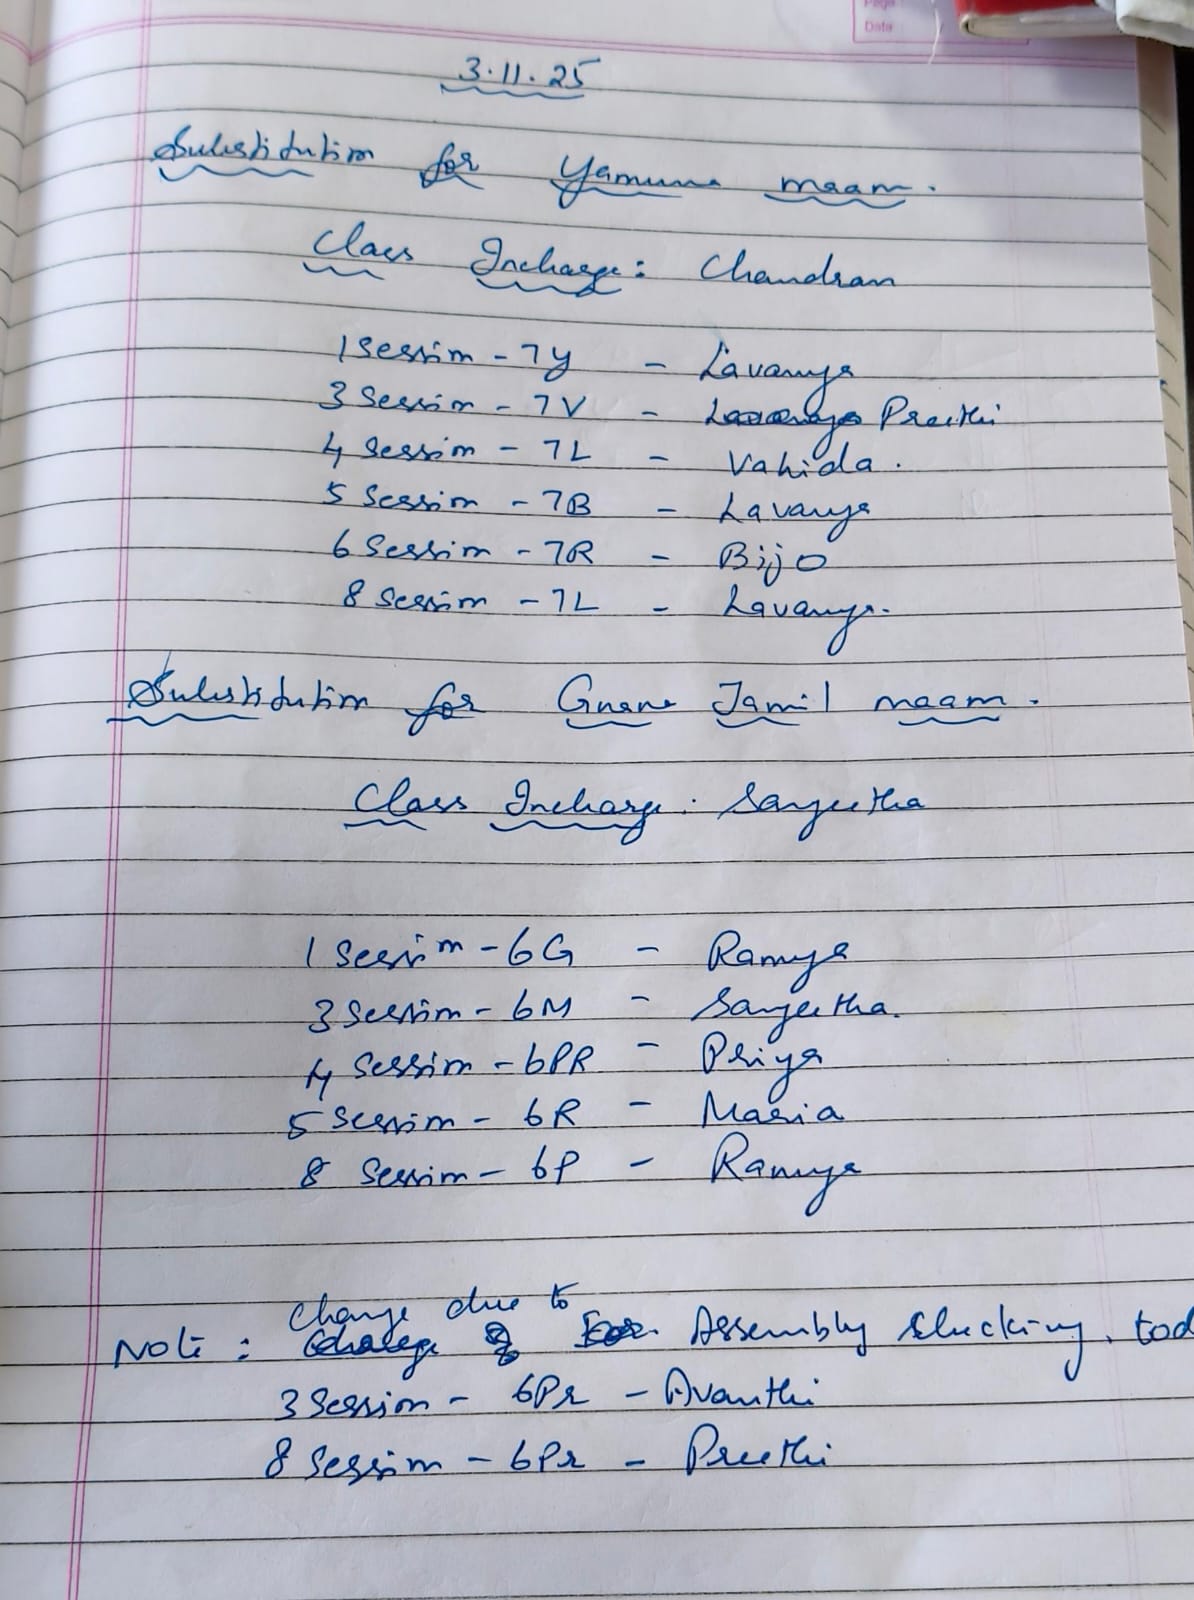 Page
Date
3.11.25
Substitution for Yamuna maam.
Class Incharge: Chandran
1 Session - 7Y - Lavanya
3 Session - 7V - Lavanya Preethi
4 Session - 7L - Vahida.
5 Session - 7B - Lavanya
6 Session - 7R - Bijo
8 Session - 7L - Lavanya.
Substitution for Gnana Tamil maam.
Class Incharge: Sangeetha
1 Session - 6G - Ramya
3 Session - 6M - Sangeetha.
4 Session - 6PR - Priya
5 Session - 6R - Maria
8 Session - 6P - Ramya
Change due to
Note: Assembly checking. tod
3 Session - 6Pr - Avanthi
8 Session - 6Pr - Preethi